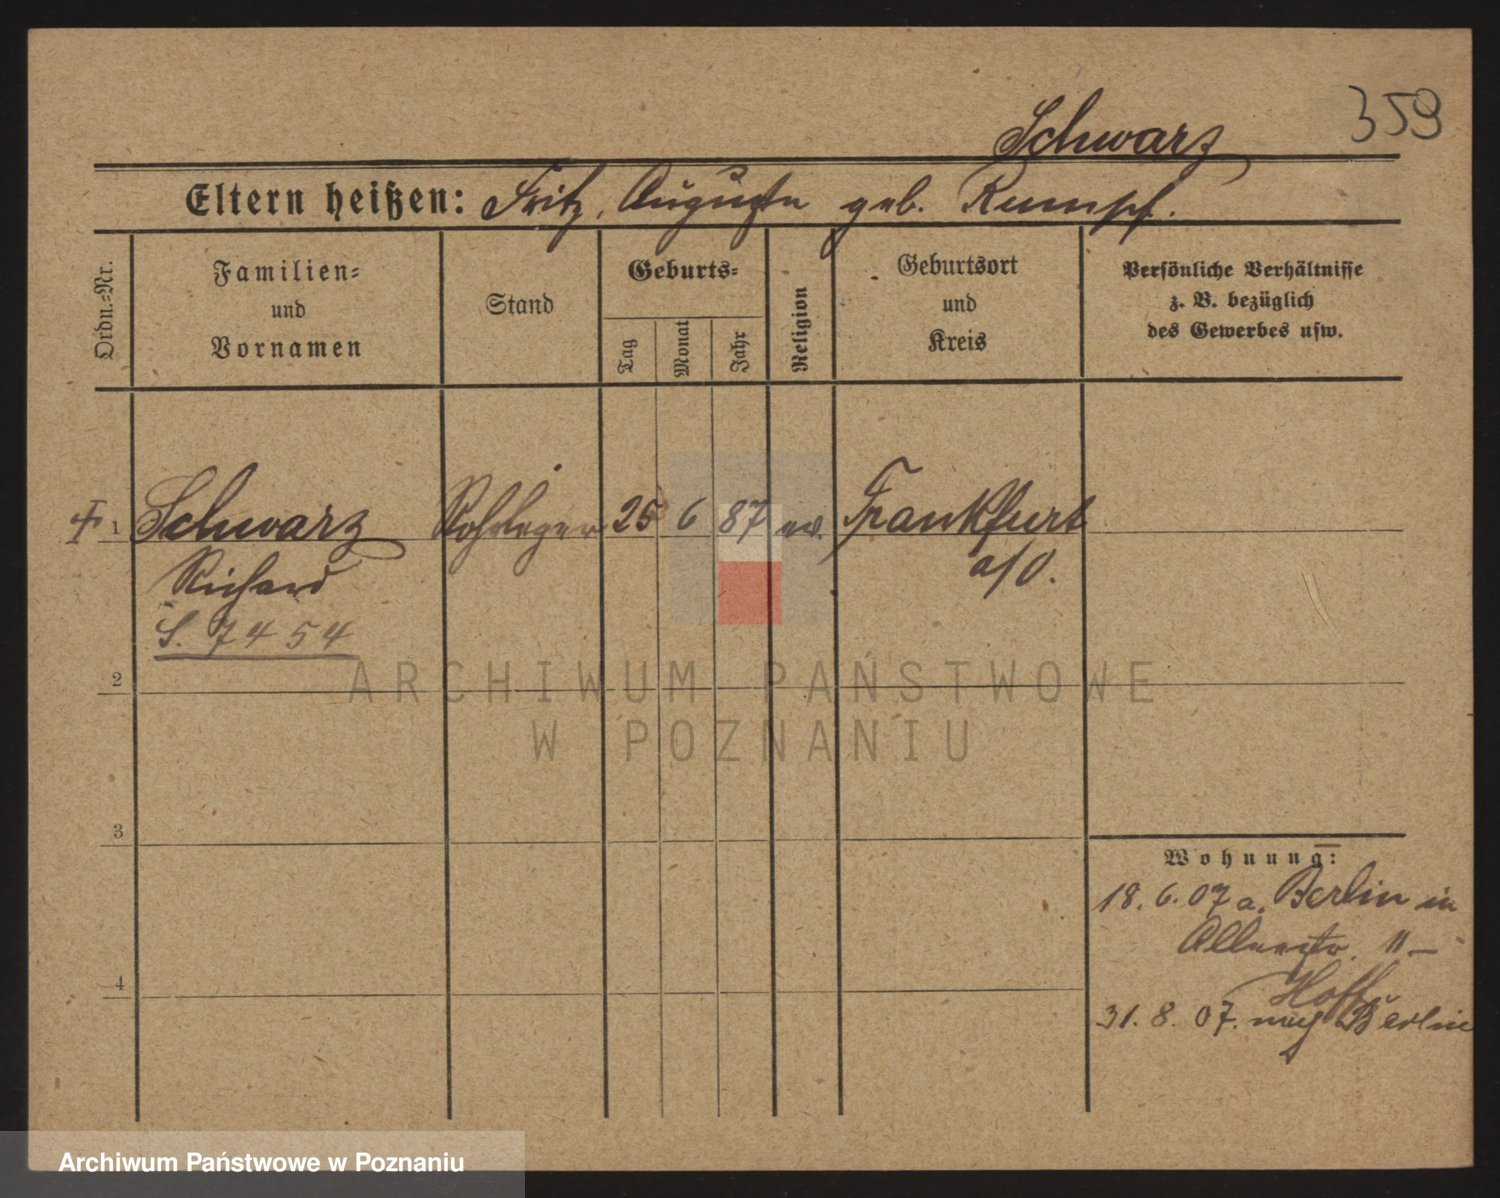 359
Schwarz
Eltern heißen: Fritz, Auguste geb. Rumpf.
Ordn.-Nr.
Familien-
und
Vornamen
Stand
Geburts-
Tag
Monat
Jahr
Religion
Geburtsort
und
Kreis
Persönliche Verhältnisse
z. B. bezüglich
des Gewerbes usw.
1 Schwarz Rohrleger 25 6 87 ev. Frankfurt
Richard a/O.
S. 7454
2
3
4
Wohnung:
18. 6. 07 a. Berlin in
11 -
Hoff
31. 8. 07. nach Berlin
ARCHIWUM PAŃSTWOWE
W POZNANIU
Archiwum Państwowe w Poznaniu